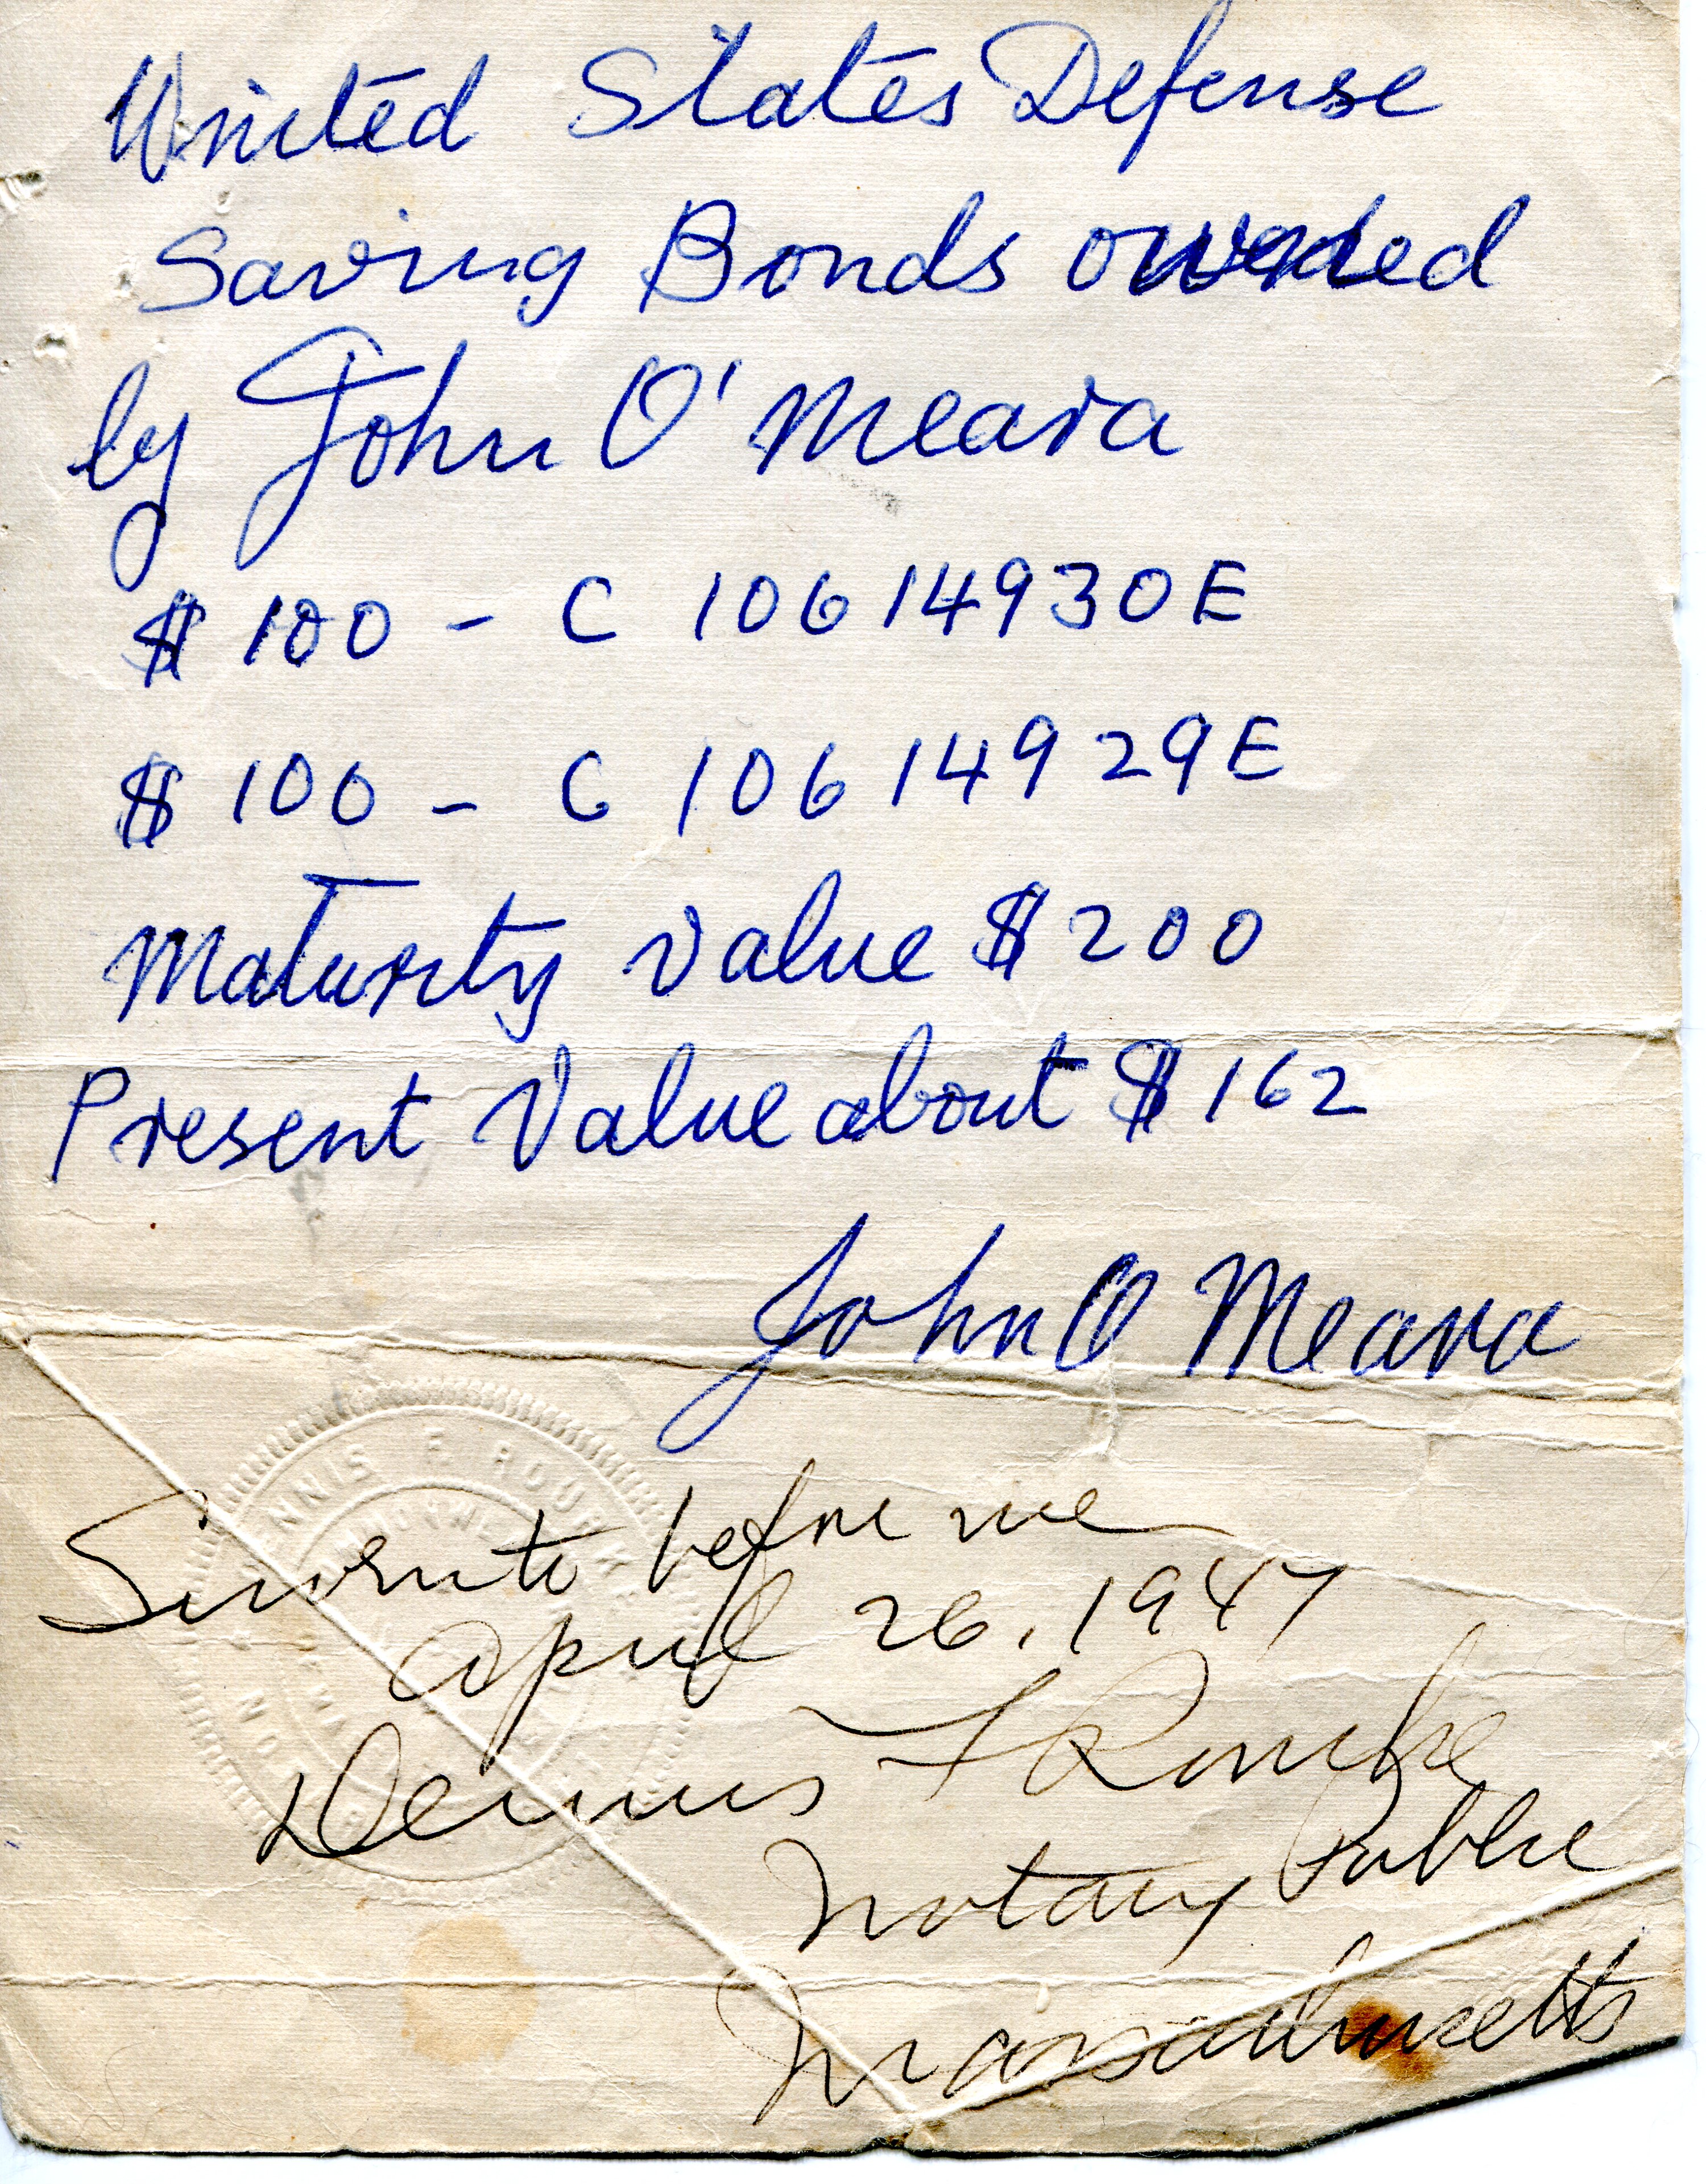 United States Defense
Saving Bonds owned
by John O'Meara
$ 100 - C 10614930E
$ 100 - C 10614929E
Maturity Value $ 200
Present Value about $ 162
John O Meara
Sworn to before me
April 26, 1947
Dennis F Rourke
Notary Public
Massachusetts
DENNIS F. ROURKE